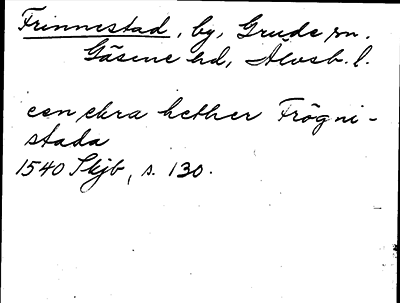 Frinnestad, by, Grude sn.
Gäsene hd, Älvsb. l.
een ekra hether Frögni-
stada
1540 Skjb, s. 130.